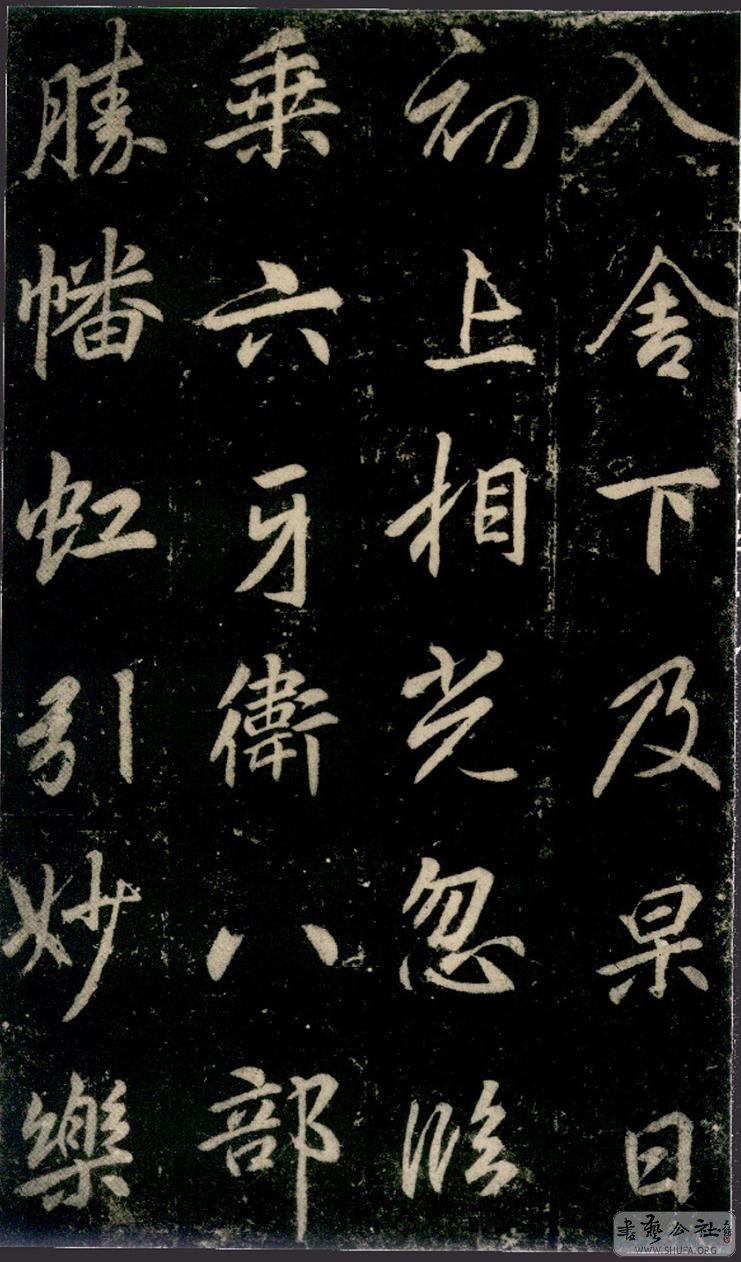 入舍下及杲日
初上相光忽臨
乘六牙衛八部
勝幡虹引妙樂
書藝公社
WWW.SHUFA.ORG